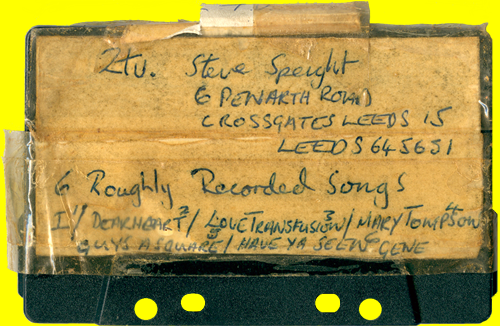 2tv. Steve Speight
6 PENARTH ROAD
CROSSGATES LEEDS 15
LEEDS 645651
6 Roughly Recorded Songs
1/ DEARHEART 2/ LOVE TRANSFUSION 3/ MARY TOMPSON 4
GUYS A SQUARE 5/ HAVE YA SEEN GENE